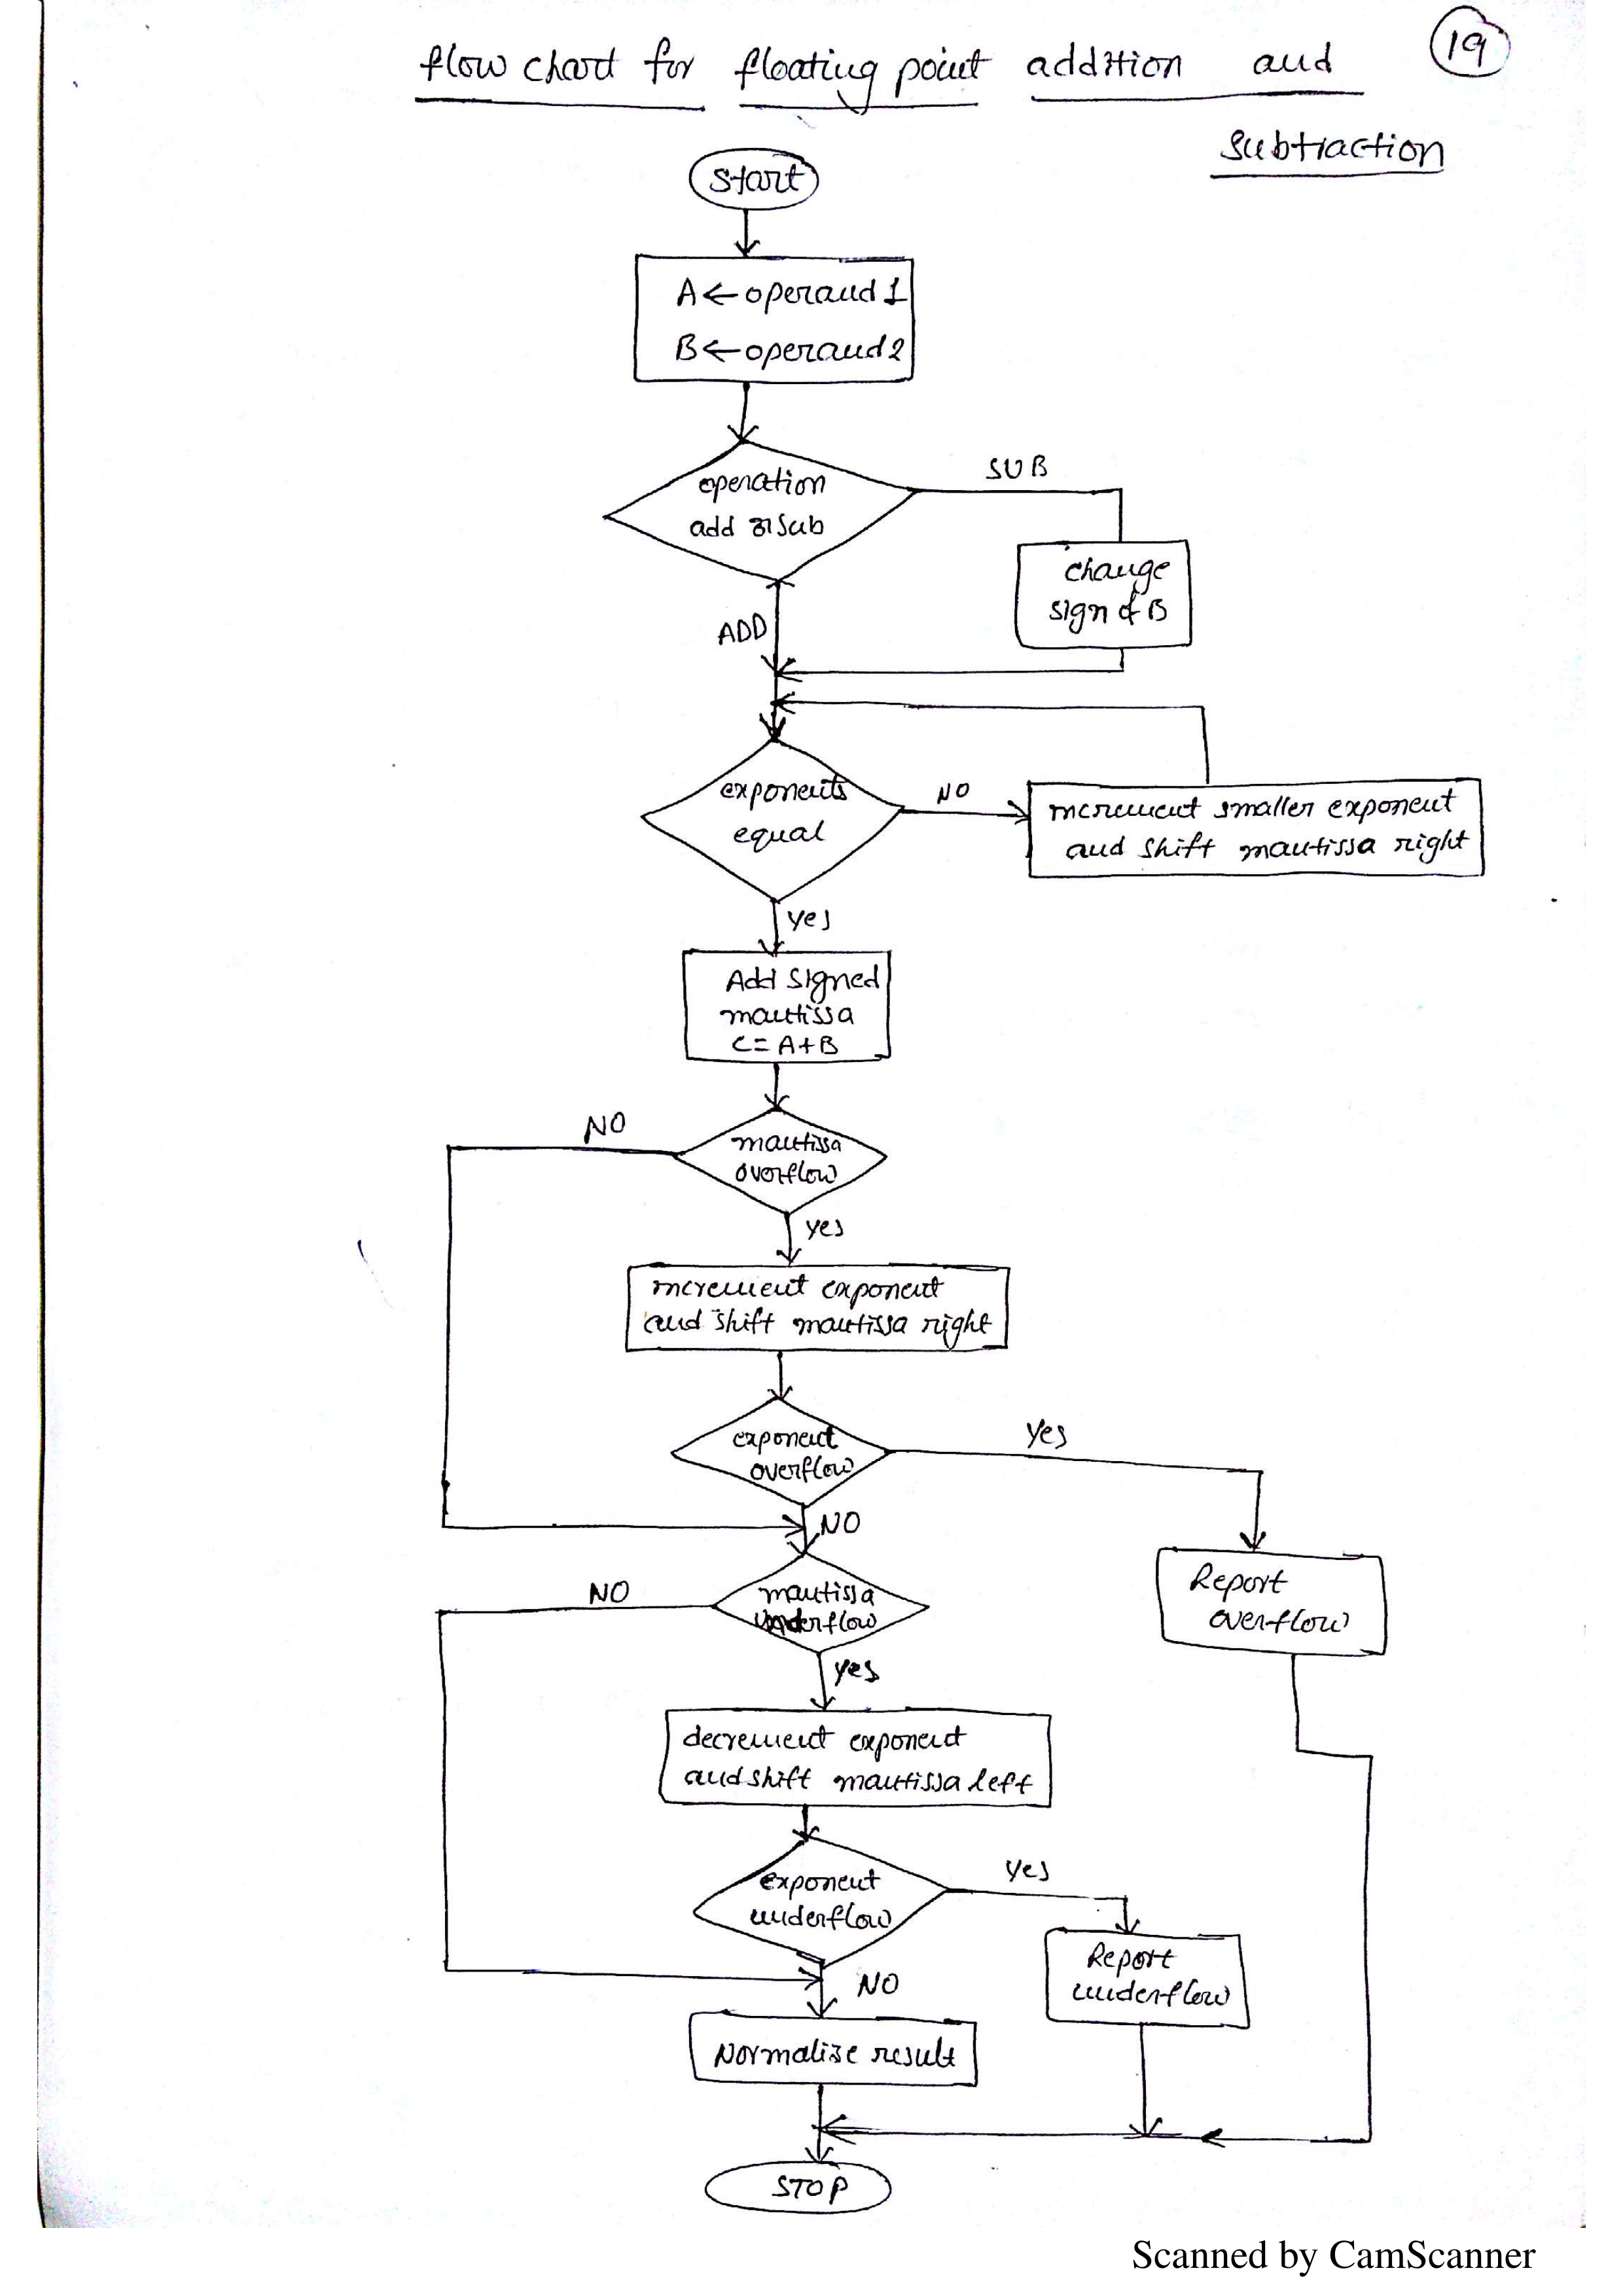 flow chart for floating point addition and
19
subtraction
Start
A←operand 1
B←operand 2
operation
add or sub
SUB
change
sign of B
ADD
exponents
equal
NO
increment smaller exponent
and shift mantissa right
yes
Add signed
mantissa
C=A+B
NO
mantissa
overflow
yes
increment exponent
and shift mantissa right
exponent
overflow
yes
NO
Report
overflow
NO
mantissa
underflow
yes
decrement exponent
and shift mantissa left
exponent
underflow
yes
Report
underflow
NO
Normalize result
STOP
Scanned by CamScanner